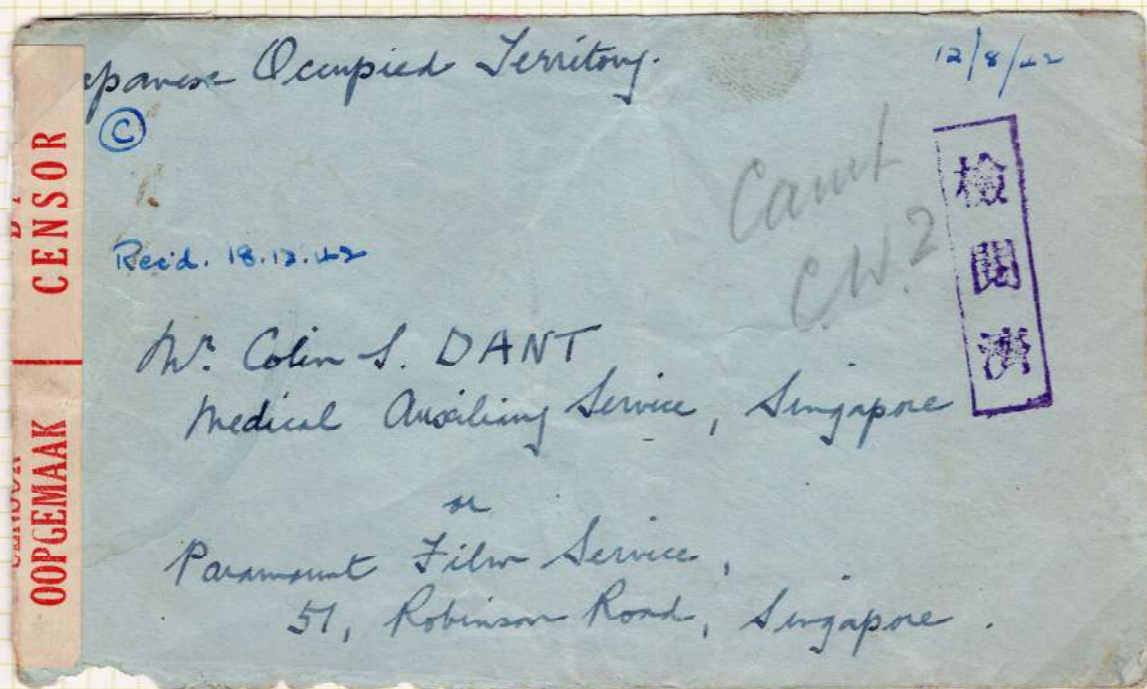 Japanese Occupied Territory.
12/8/42
C
Rec'd. 18.12.42
Camp
C.W.2
檢閲濟
Mr. Colin S. DANT
Medical Auxiliary Service, Singapore
or
Paramount Film Service,
51, Robinson Road, Singapore.
CENSOR
OOPGEMAAK